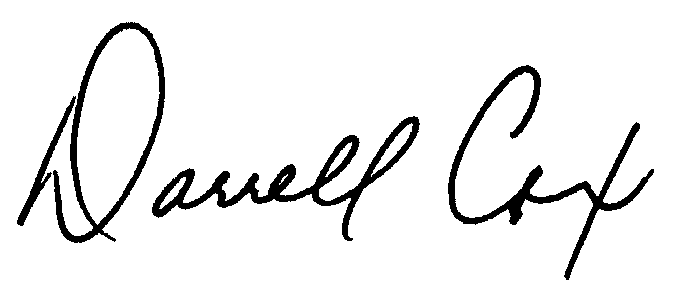 Darrell Cox